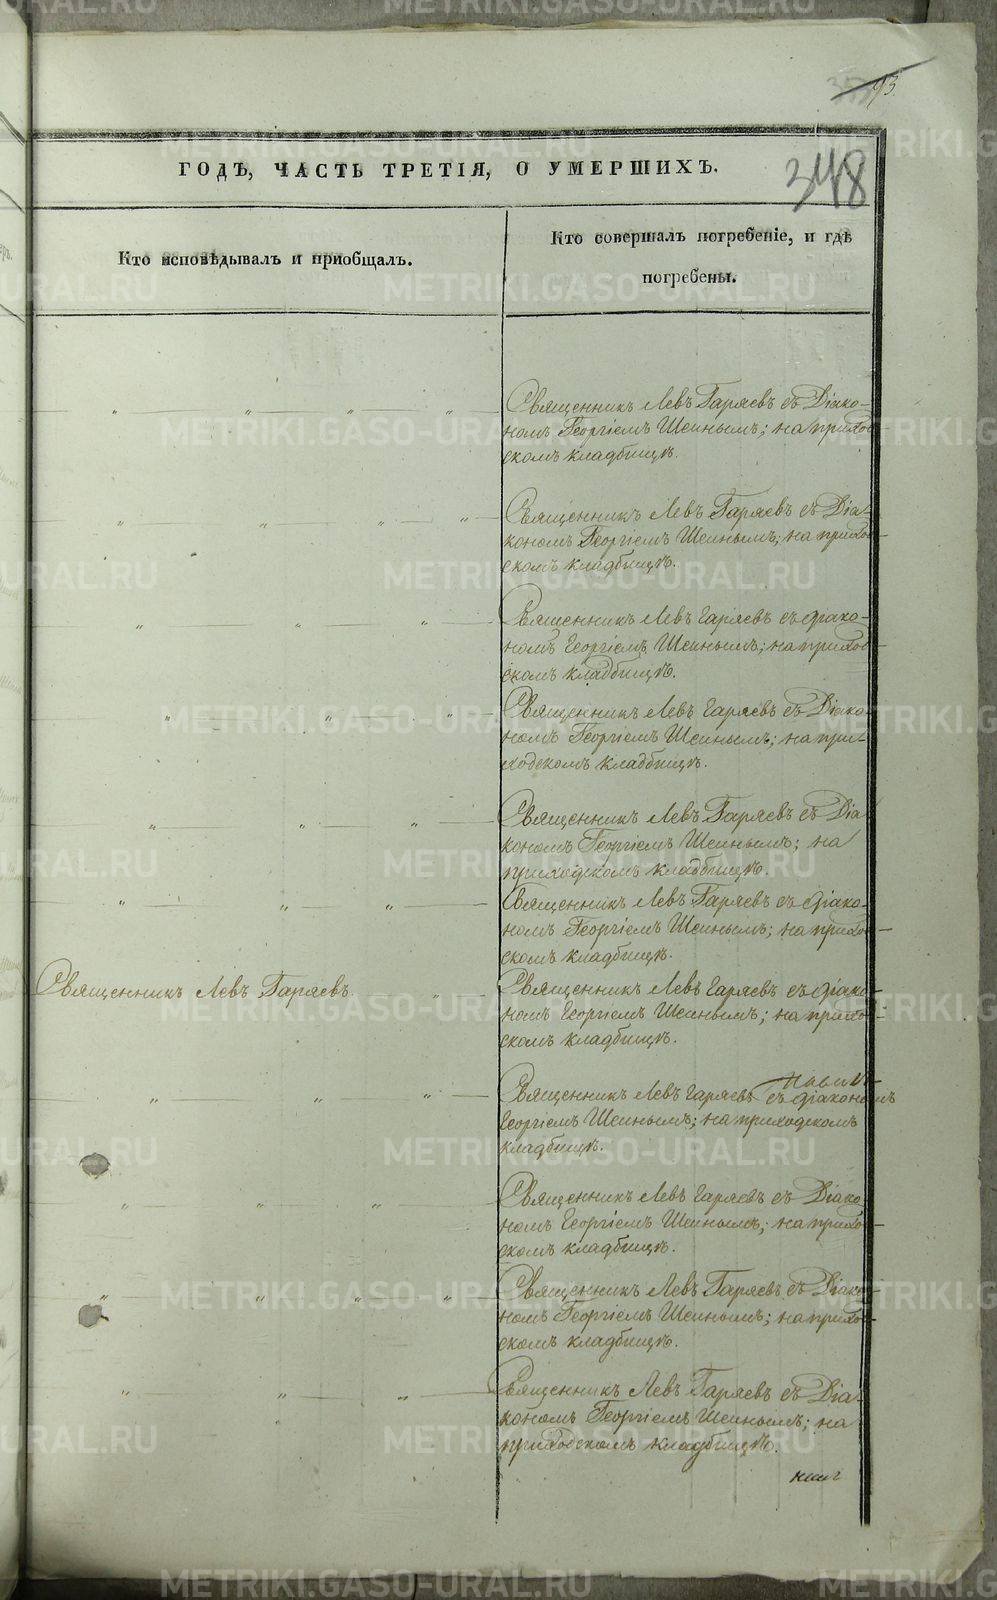 93
348
ГОДЪ, ЧАСТЬ ТРЕТІЯ, О УМЕРШИХЪ.
Кто исповѣдывалъ и приобщалъ.
Кто совершалъ погребеніе, и гдѣ
погребены.
Священникъ Левъ Гаряевъ съ Діако-
номъ Георгіемъ Шеинымъ; на приход-
скомъ кладбищѣ.
Священникъ Левъ Гаряевъ съ Діа-
кономъ Георгіемъ Шеинымъ; на приход-
скомъ кладбищѣ.
Священникъ Левъ Гаряевъ съ діако-
номъ Георгіемъ Шеинымъ; на приход-
скомъ кладбищѣ.
Священникъ Левъ Гаряевъ съ Діако-
номъ Георгіемъ Шеинымъ; на при-
ходскомъ кладбищѣ.
Священникъ Левъ Гаряевъ съ Діа-
кономъ Георгіемъ Шеинымъ; на
приходскомъ кладбищѣ.
Священникъ Левъ Гаряевъ съ діако-
номъ Георгіемъ Шеинымъ; на приход-
скомъ кладбищѣ.
Священникъ Левъ Гаряевъ
Священникъ Левъ Гаряевъ съ діако-
номъ Георгіемъ Шеинымъ; на приход-
скомъ кладбищѣ.
Священникъ Левъ Гаряевъ съ діакономъ
Георгіемъ Шеинымъ; на приходскомъ
кладбищѣ.
Священникъ Левъ Гаряевъ съ Діако-
номъ Георгіемъ Шеинымъ; на приход-
скомъ кладбищѣ.
Священникъ Левъ Гаряевъ съ Діако-
номъ Георгіемъ Шеинымъ; на приход-
скомъ кладбищѣ.
Священникъ Левъ Гаряевъ съ Діа-
кономъ Георгіемъ Шеинымъ; на
приходскомъ кладбищѣ.
METRIKI.GASO-URAL.RU